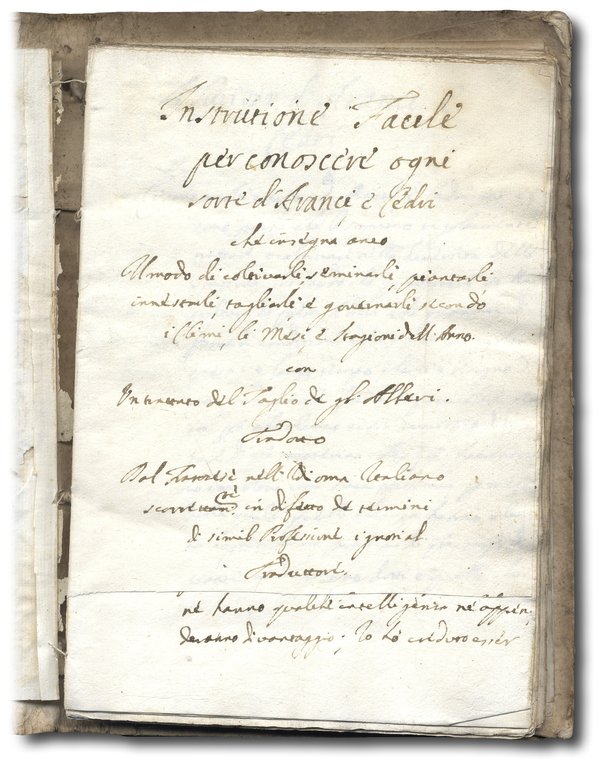 Instrutione Facile
per conoscere ogni
sorte d'Aranci e Cedri
che insegna anco
Il modo di coltivarli, seminarli, piantarli
innestarli, tagliarli e governarli secondo
i Climi, li Mesi, e Stagioni dell'Anno.
con
Un trattato del Taglio de gl'Alberi.
Tradotto
Dal Francese nell'Idioma Italiano
in difetto de termini
di simil Professione ignoti al
Traduttore.
né hanno qualche intelligenza né appren,
deranno di vantaggio; Io ho creduto esser